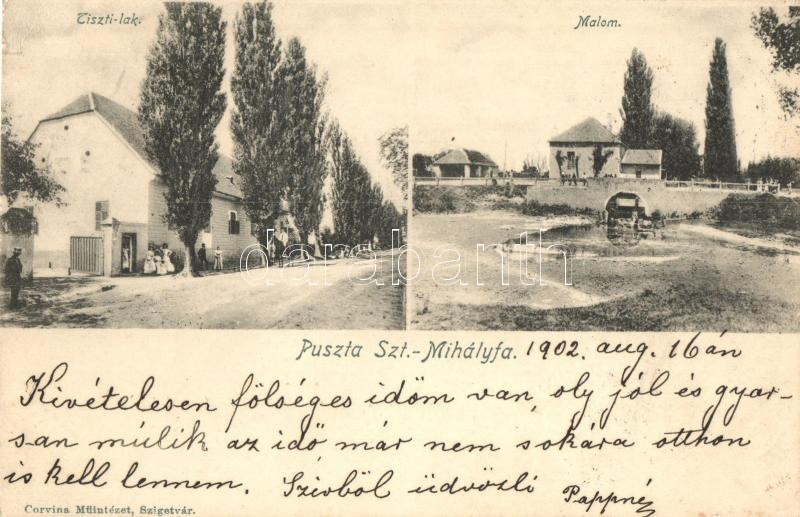 Tiszti-lak.
Malom.
darabanth
Puszta Szt.-Mihályfa. 1902. aug. 16án
Kivételesen fölséges időm van, oly jól és gyor-
san múlik az idő, már nem sokára otthon
is kell lennem. Szívből üdvözli Pappné
Corvina Műintézet, Szigetvár.